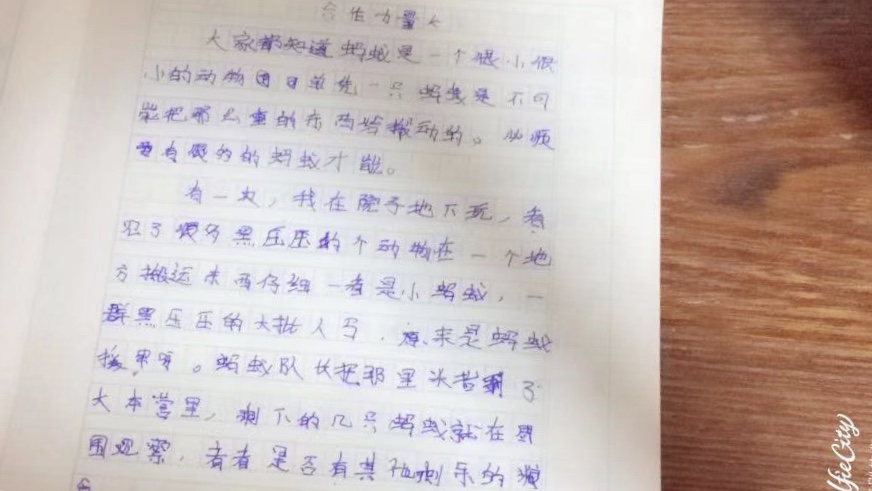 合作力量
大家都知道蚂蚁是一个很小很
小的动物因日单凭一只蚂蚁是不可
能把那么重的东西给搬动的。必须
要有很多的蚂蚁才能。
有一次，我在院子地下玩，看
见了很多黑压压的个动物在一个地
方搬运东西仔细一看是小蚂蚁，一
群黑压压的大批人马，原来是蚂蚁
搬果。蚂蚁队伍把那里米背到了
大本营里，剩下的几只蚂蚁就在周
围观察，看看是否有其他剩东的
lfieCity